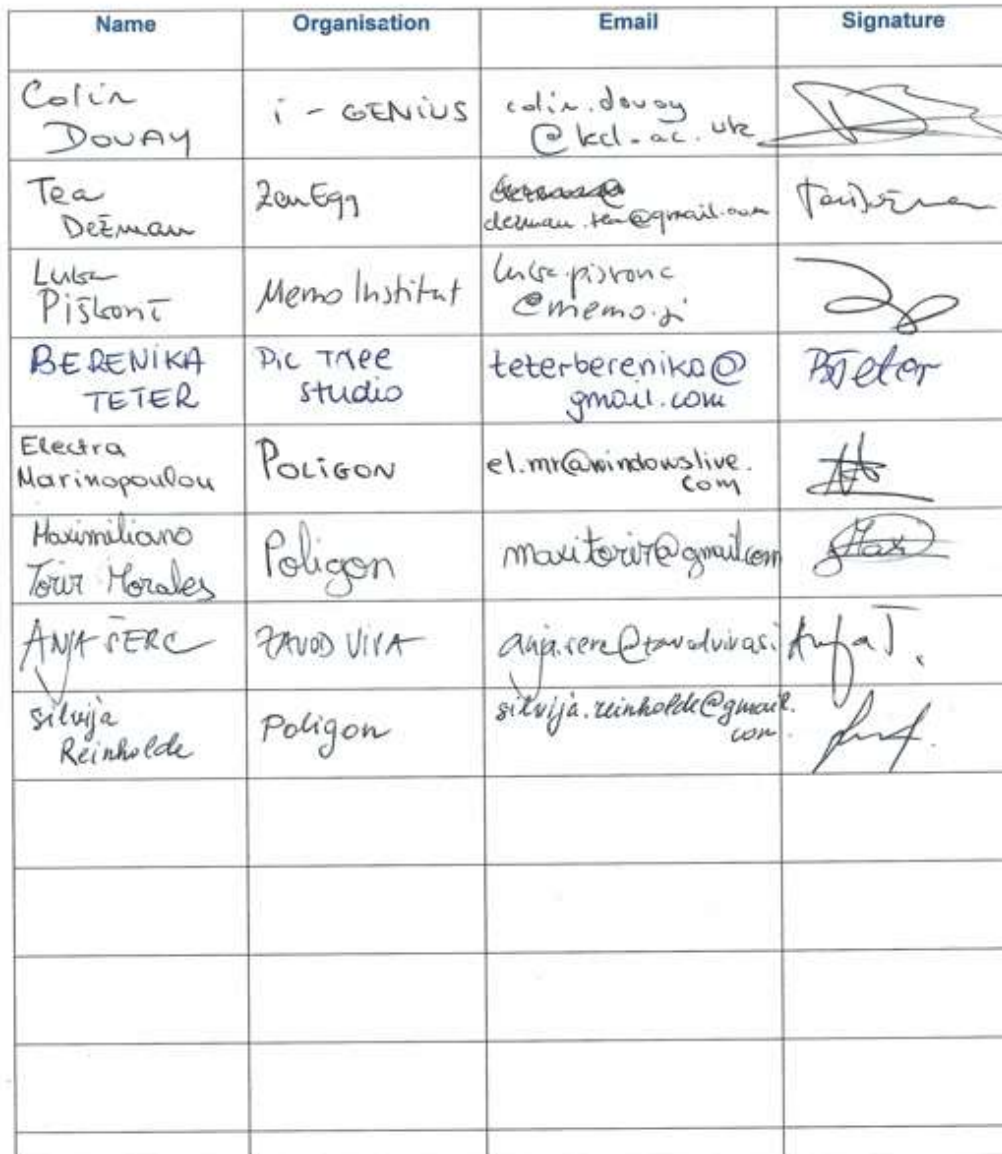 Name Organisation Email Signature
Colin
DOUAY
i - GENiUS
colin.douay
@kcl.ac.uk
Tea
Dežman
ZenEgg
dezman.tea@gmail.com
Memo Institut
@memo.si
BERENIKA
TETER
Pic Tree
studio
teterberenika@
gmail.com
BTeter
Electra
Marinopoulou
POLIGON
el.mr@windowslive.
com
Maximiliano
Torir Morales
Poligon
maxitorir@gmail.com
Maxi
ANJA ŠERC
ZAVOD VIVA
anja.serc@zavodviva.si
Anja Š.
silvija
Reinholde
Poligon
silvija.reinholde@gmail.
com